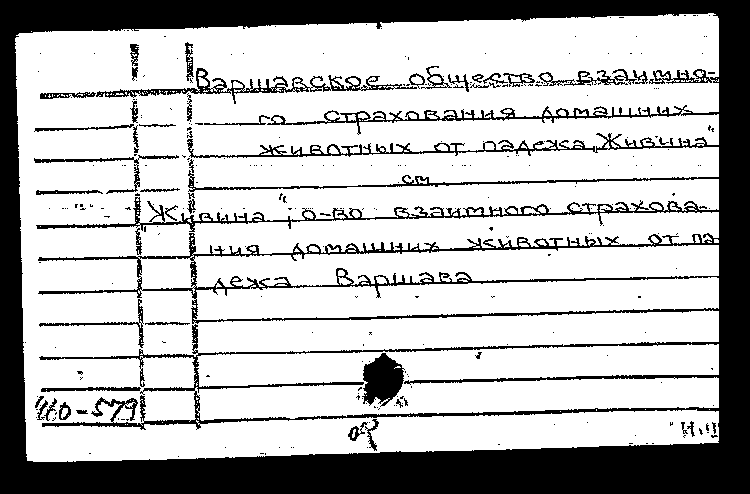 Варшавское общество взаимно-
го страхования домашних
животных от падежа „Живина"
см.
„Живина", о-во взаимного страхова-
ния домашних животных от па-
дежа Варшава